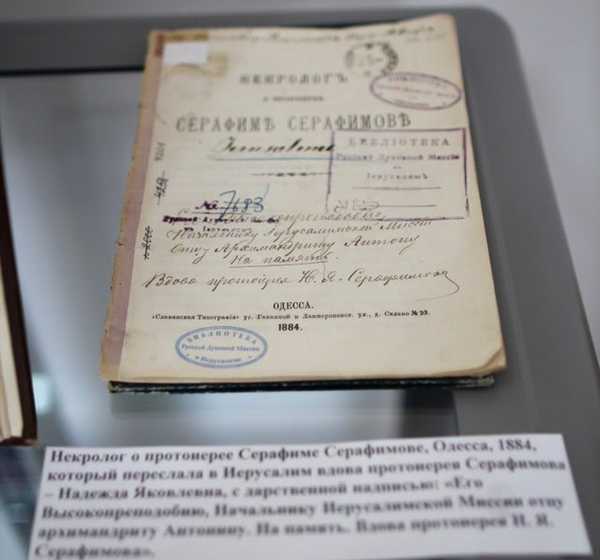 НЕКРОЛОГЪ
О ПРОТОІЕРЕѢ
СЕРАФИМѢ СЕРАФИМОВѢ
БИБЛІОТЕКА
Русской Духовной Миссіи
въ
Іерусалимѣ
№ 7688
Начальнику Іерусалимской Миссіи
Отцу Архимандриту Антонину
На память.
Вдова протоіерея Н. Я. Серафимова
ОДЕССА.
«Славянская Типографія» уг. Гаванной и Ланжероновск. ул., д. Склаво № 20.
1884.
БИБЛІОТЕКА
Русской Духовной Миссіи
въ Іерусалимѣ
Некролог о протоиерее Серафиме Серафимове, Одесса, 1884,
который переслала в Иерусалим вдова протоиерея Серафимова
– Надежда Яковлевна, с дарственной надписью: «Его
Высокопреподобию, Начальнику Иерусалимской Миссии отцу
архимандриту Антонину. На память. Вдова протоиерея Н. Я.
Серафимова».